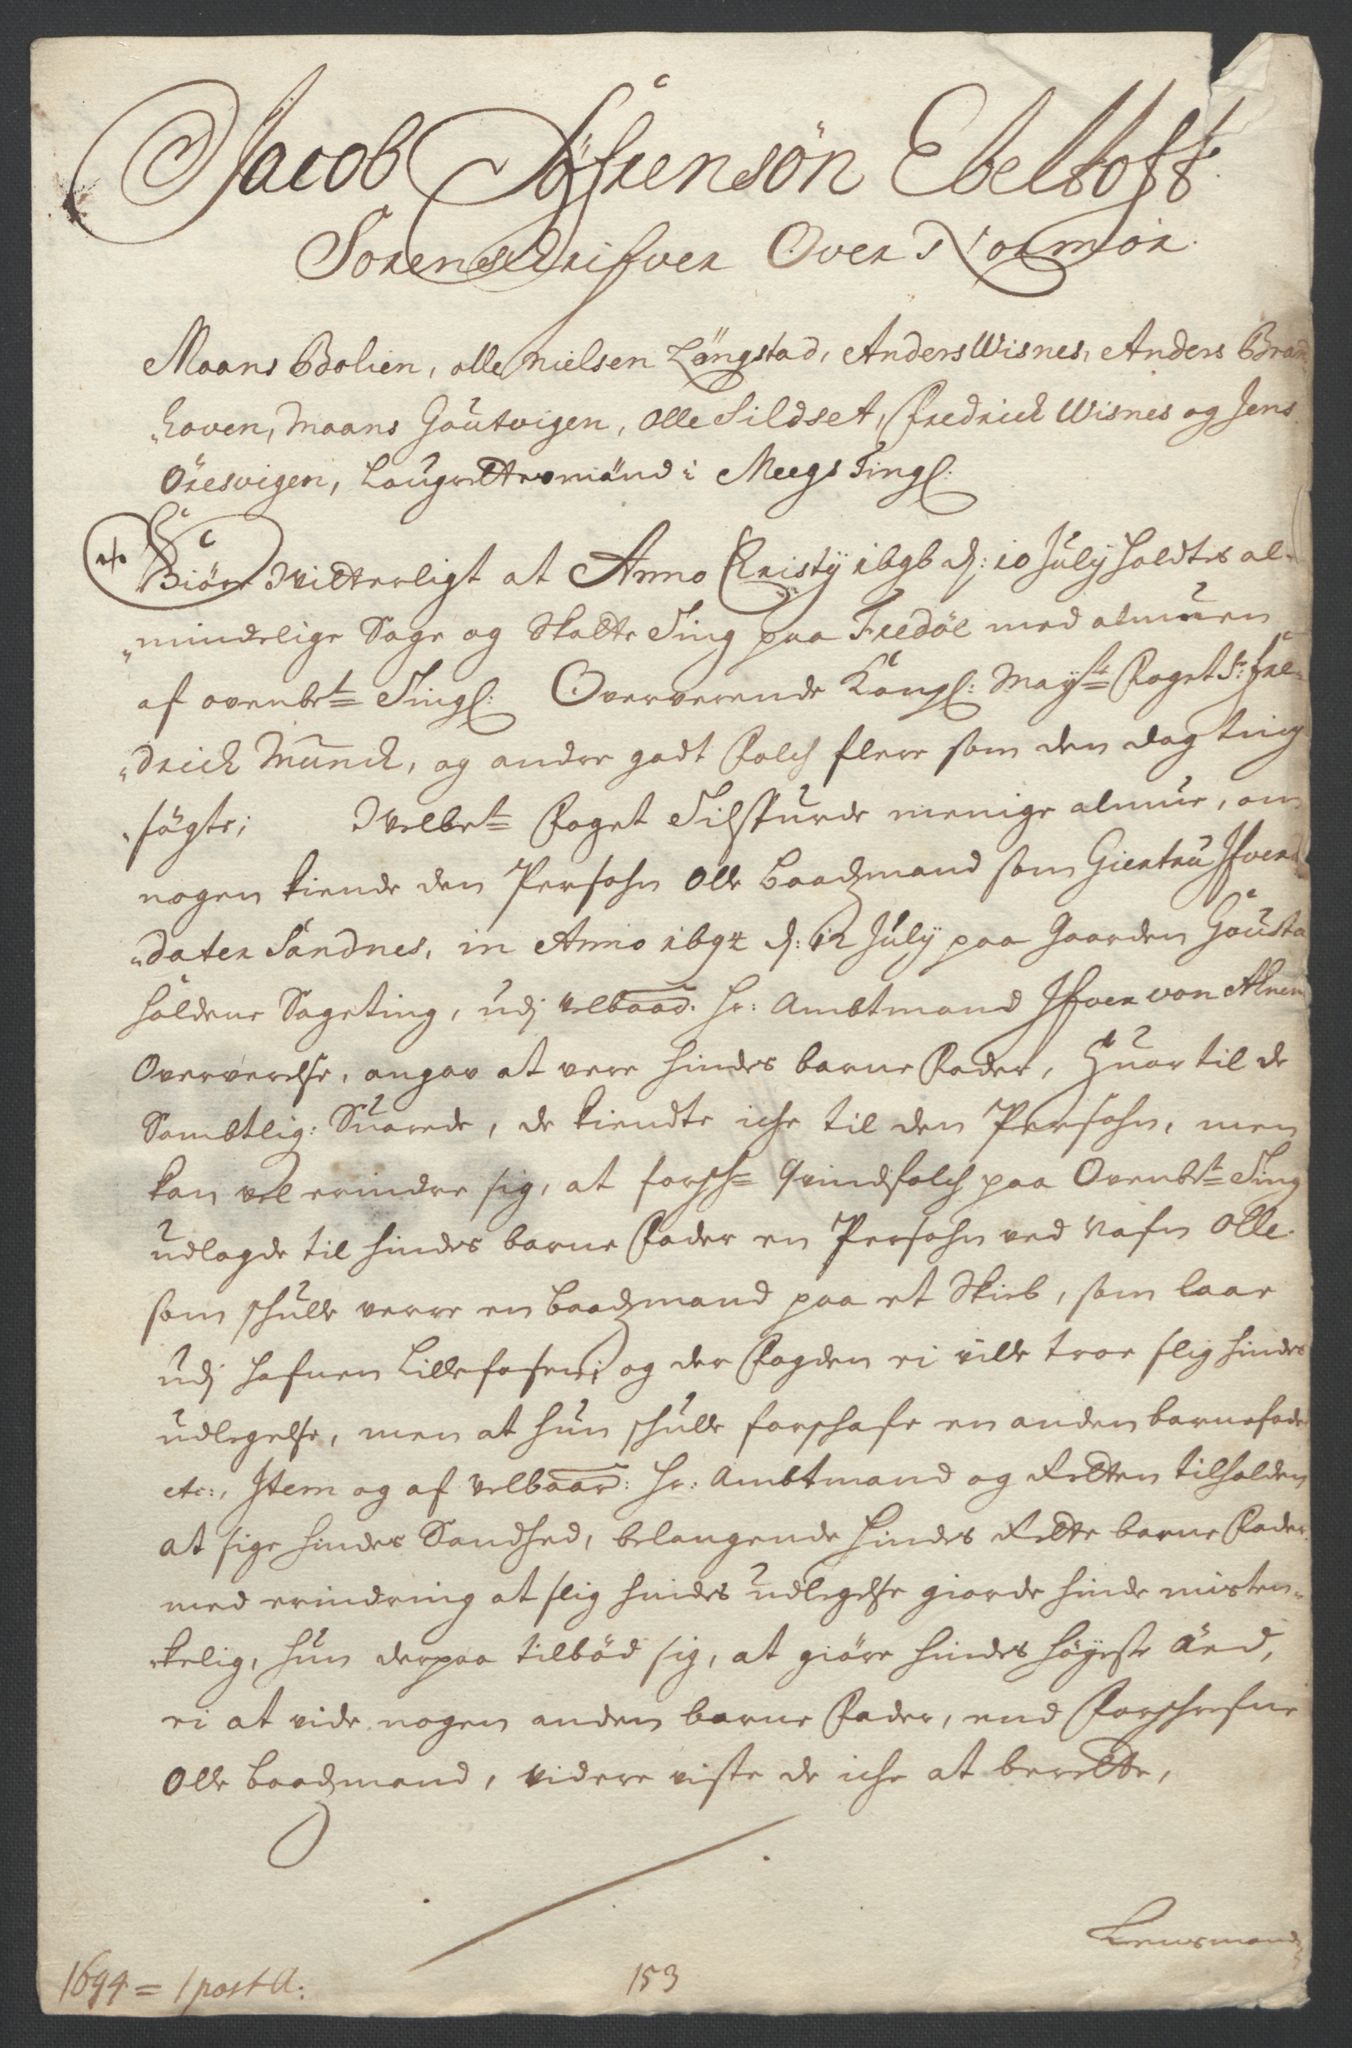 Jacob Søfrensøn Ebeltoft
Sorenschrifver Over Normør.
Maans Bolien, olle Nielsen Längstad, Anders Wisnes, Anders Brand
„hoven, Maans Goutvigen, Olle Sildset, Fredrich Wisnes og Jens
Öresvigen, Laugrettesmänd i Meegs Tingl:
Giöre Witterligt at Anno Christy 1696 d: 10 July holdtes al„
„mindelige Sage og Skatte Ting paa Tredøl med almuen
af ovenbte Tingl: Oververende Kongl: Mayts Foget Sr: Fre„
„drich Munch, og andre godt Folch flere som den dag ting
„søgte; Welbte Foget Tilspurde menige almue, om
nogen kiende den Persohn Olle Baadzmand som Giertru Ifvers
„dater Sandnes, in Anno 1694 d: 12 July paa Gaarden Gousta
holdene Sageting, udj velbaar: Hr: Ambtmand Ifver von Ahnen
Oververelse, angav at vere hindes barne Fader, Huortil de
Sambtlig: Suarede, de kiendte iche til den Persohn, men
kan vel erindre sig, at forsche qvindfolch paa Ovenbte Ting
udlagde til hindes barne Fader en Persohn ved Nafn Olle
som schulle verre en Baadzmand paa et Skieb, som laae
udj hafnen Lillefosen; og der Fogden ei ville troe slig hindes
udlegelse, men at hun schulle forschafe en anden barnefader
etc:, Item og af velbaar: Hr: Ambtmand og Retten tilholden
at sige hindes Sandhed, belangende hindes Rette barne Fader
med erindring at slig hindes udlegelse giorde hinde misten„
kelig, hun derpaa tilböd sig, at giöre hindes höyeste Äed,
ei at vide nogen anden barne Fader, end Forschrefne
Olle Baadzmand, videre viste de iche at berette,
Lensmand
1694 = 1 post A: 153